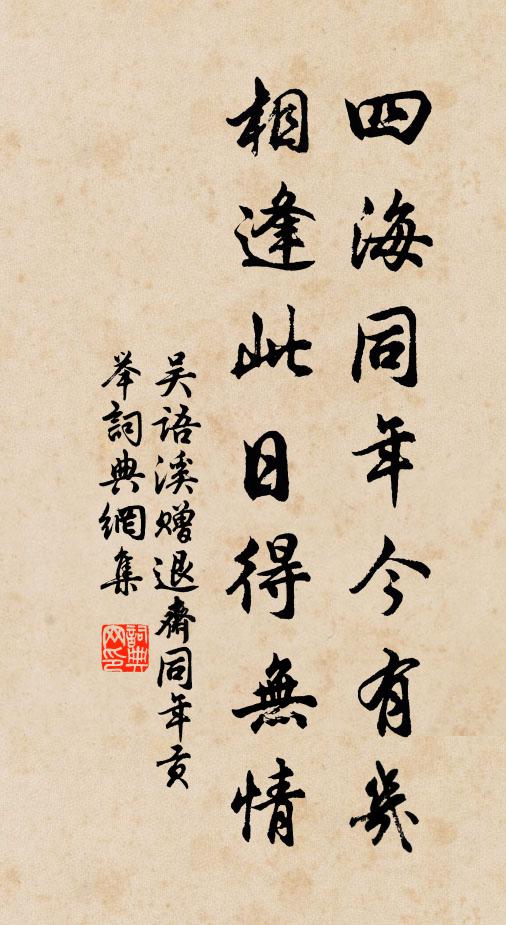 四海同年今有幾
相逢此日得無情
吴語溪赠退齋同年贡
举詞典網集
詞典
网印